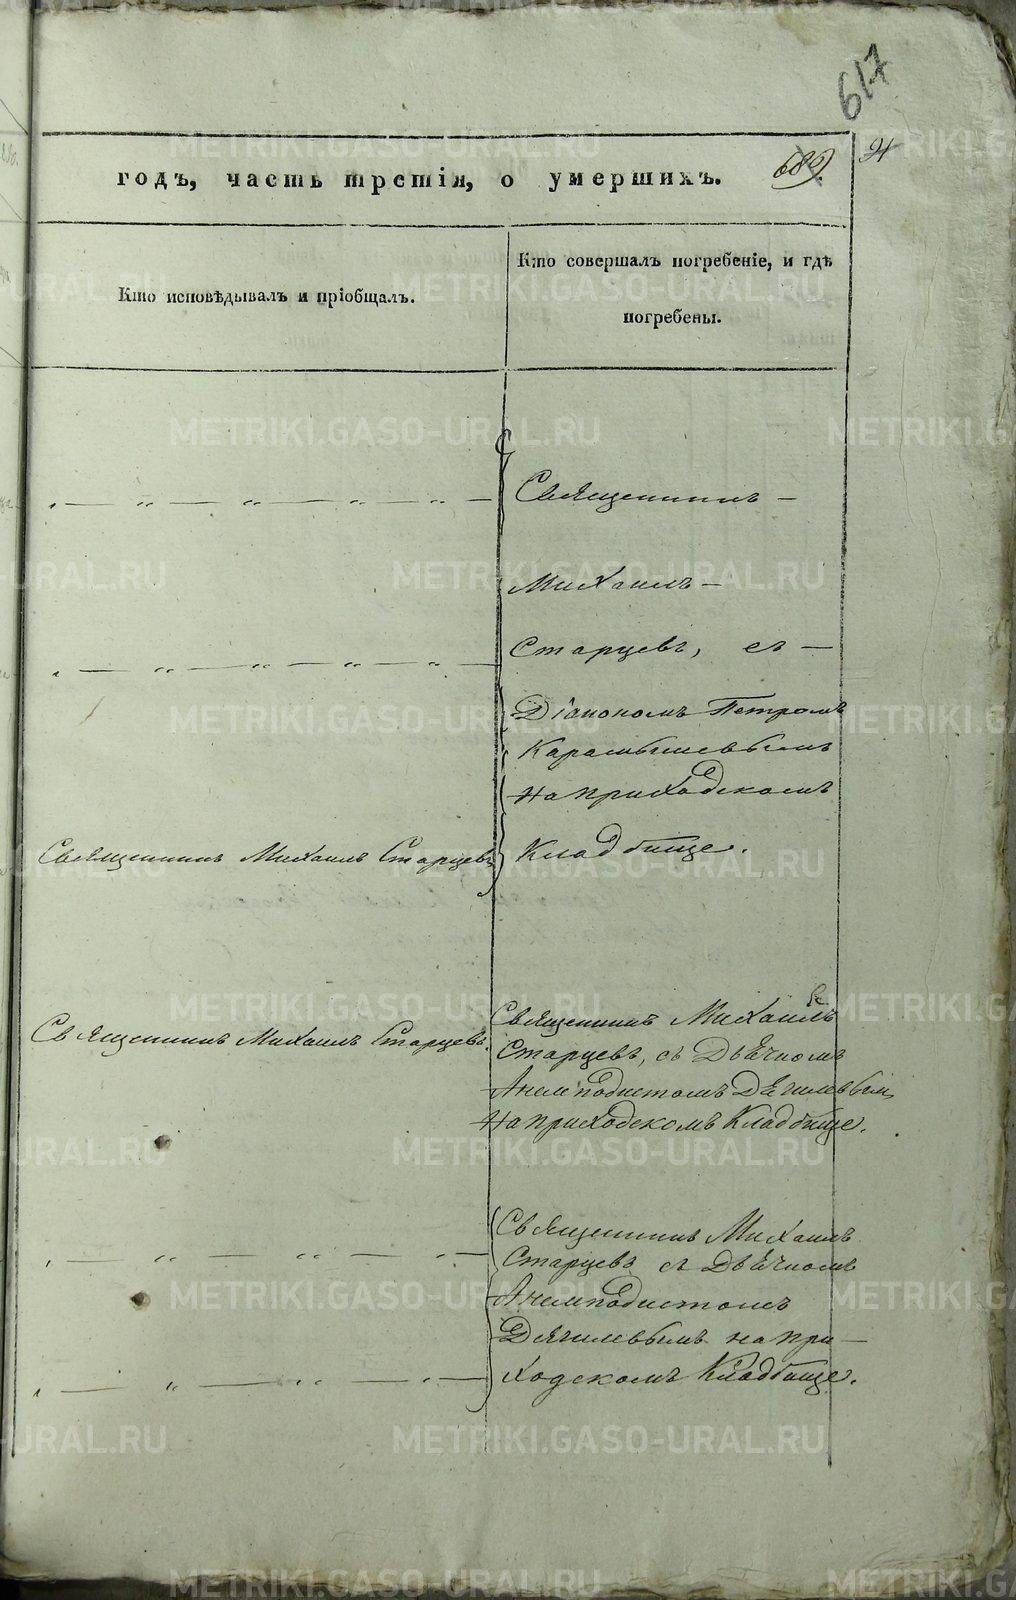 617
689
24
годъ, часть третія, о умершихъ.
Кто исповѣдывалъ и пріобщалъ.
Кто совершалъ погребеніе, и гдѣ
погребены.
Священникъ —
Михаилъ —
Старцевъ, съ —
Діакономъ Петромъ
Карамышевымъ
на приходскомъ
Кладбище.
Священникъ Михаилъ Старцевъ
Священникъ Михаилъ Старцевъ.
Священникъ Михаилъ
Старцевъ, съ Дьячкомъ
Анемподистомъ Дягилевым
на приходскомъ Кладбище.
Священникъ Михаилъ
Старцевъ съ Дьячкомъ
Анемподистомъ
Дягилевымъ на при—
ходскомъ Кладбище.
METRIKI.GASO-URAL.RU